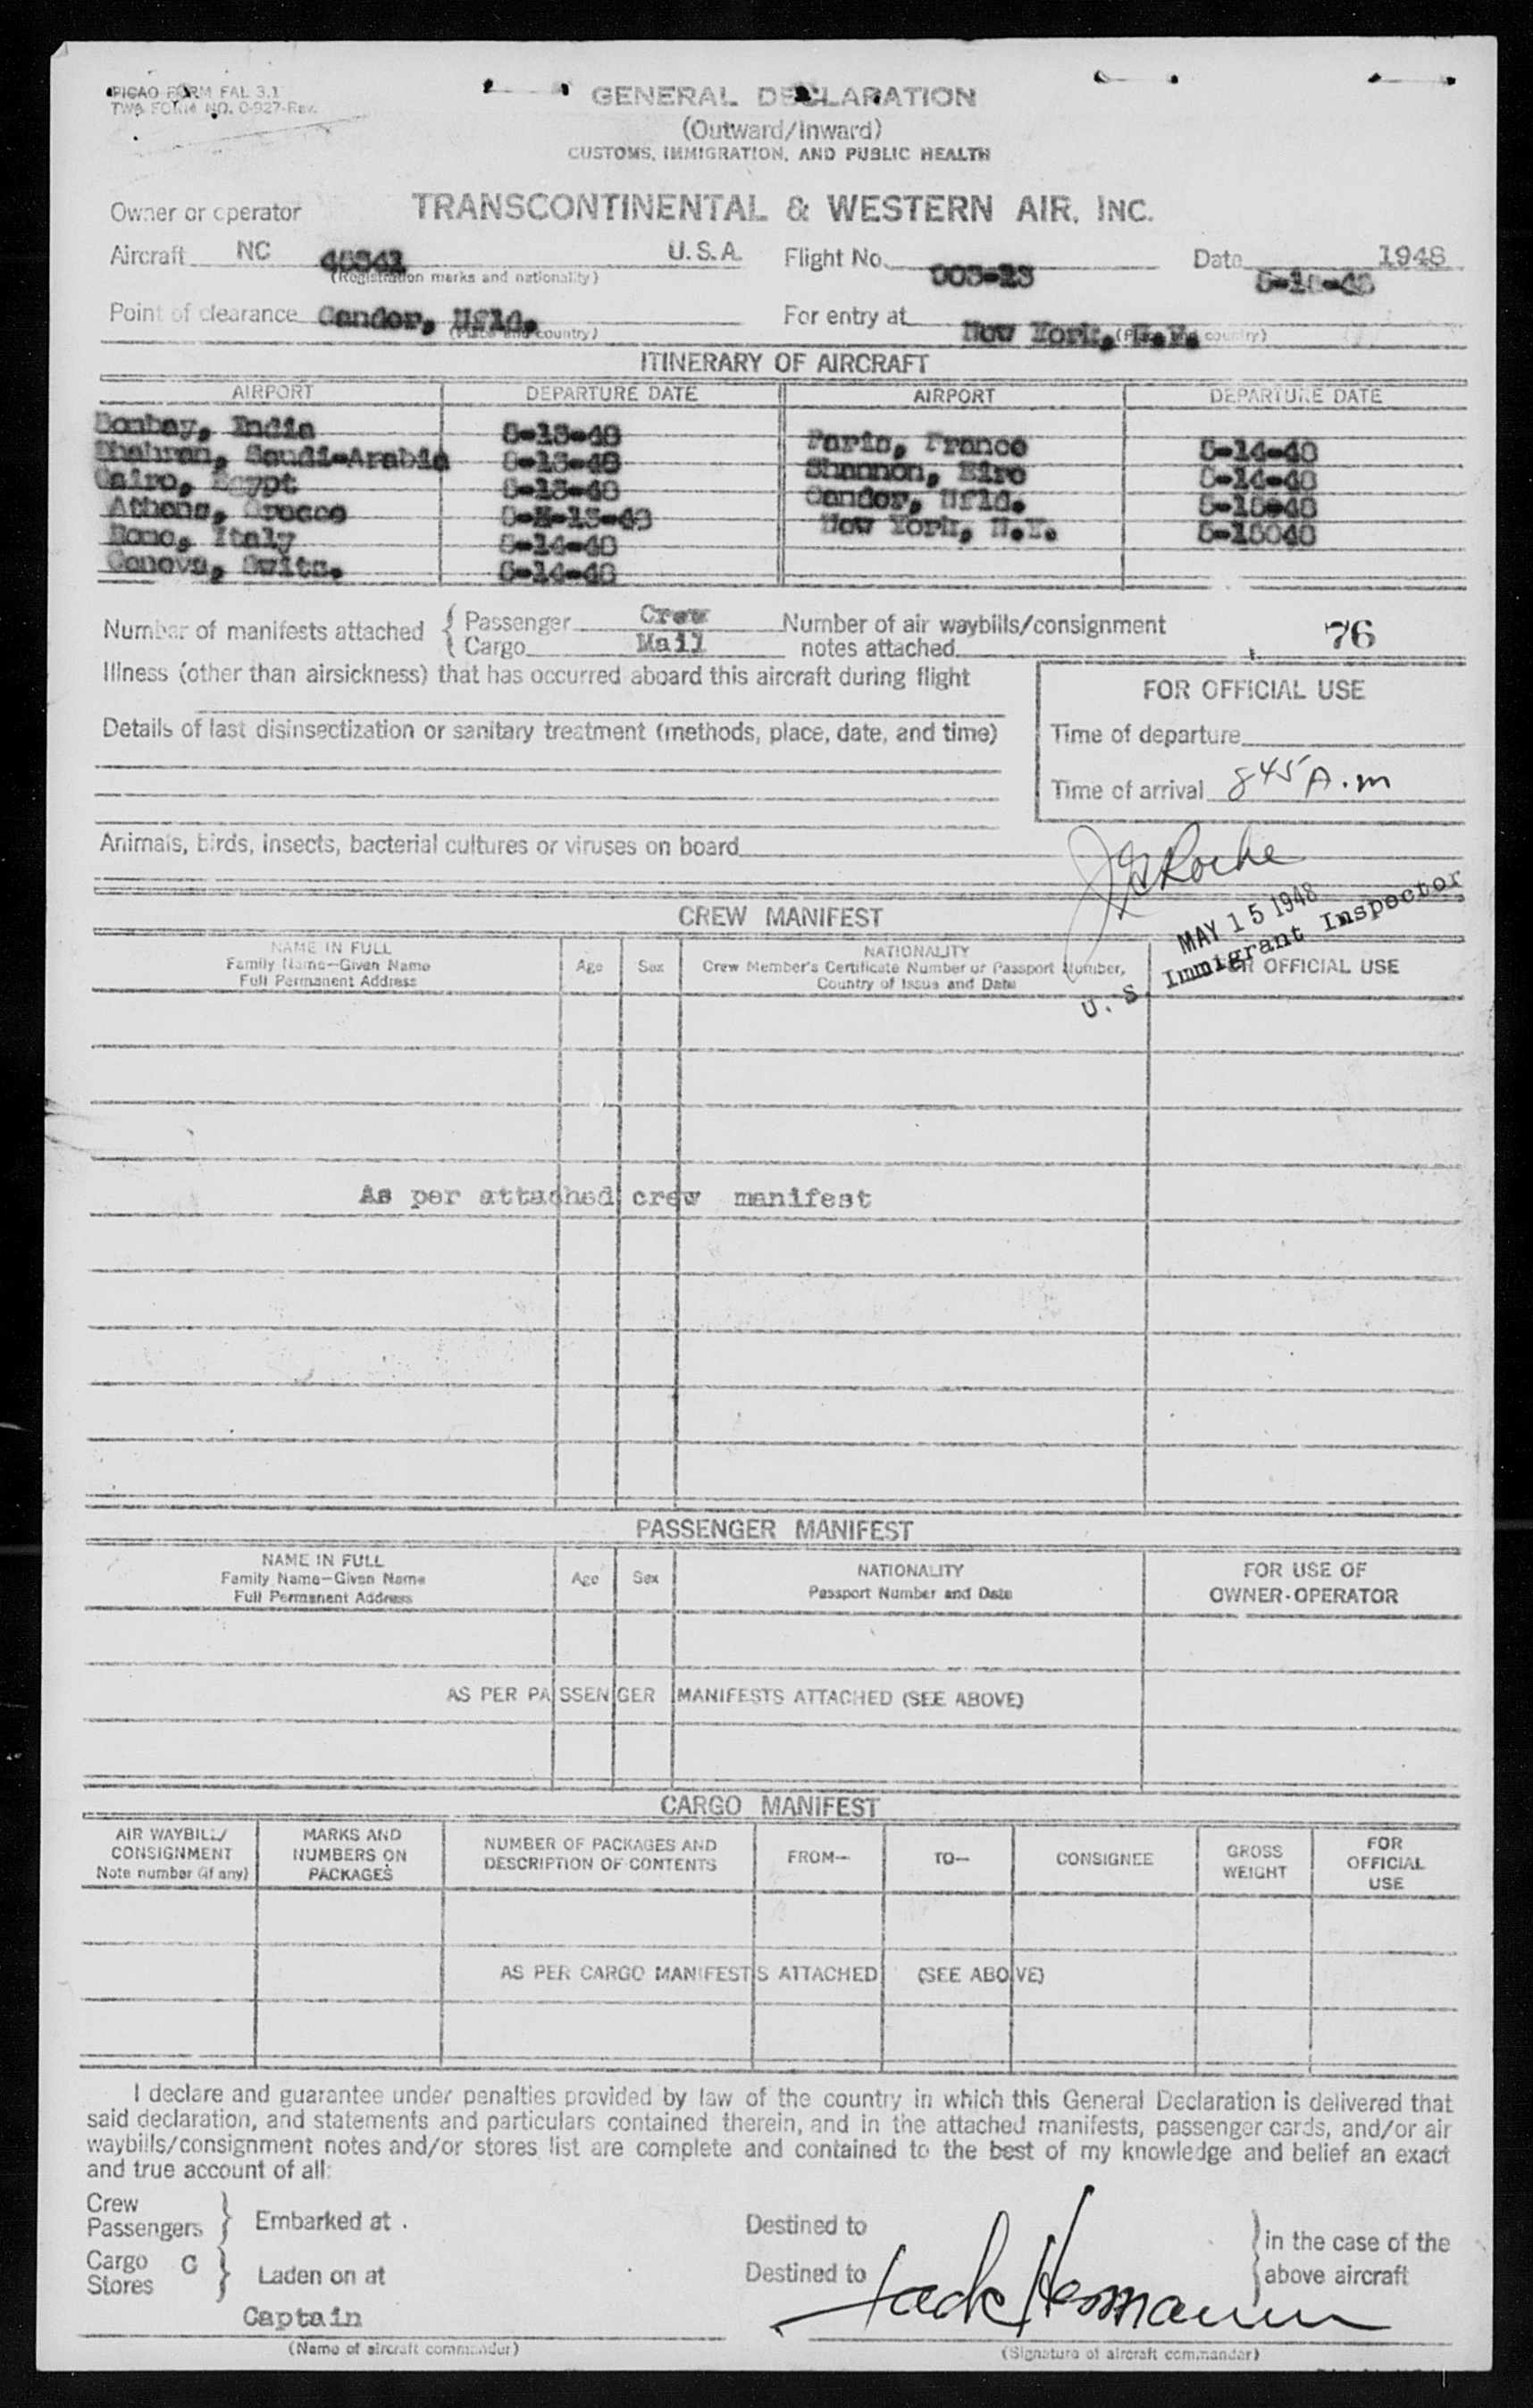 PICAO FORM FAL 3.1
TWA FORM NO. 0-927-Rev.
GENERAL DECLARATION
(Outward/Inward)
CUSTOMS, IMMIGRATION, AND PUBLIC HEALTH
Owner or operator TRANSCONTINENTAL & WESTERN AIR, INC.
Aircraft NC U.S.A. Flight No. Date 1948
(Registration marks and nationality)
Point of clearance Gander, Nfld. For entry at New York, N.Y.
(Place and country)
ITINERARY OF AIRCRAFT
AIRPORT DEPARTURE DATE AIRPORT DEPARTURE DATE
Bombay, India 5-13-48 Paris, France 5-14-48
Dhahran, Saudi-Arabia 5-13-48 Shannon, Eire 5-14-48
Cairo, Egypt 5-13-48 Gander, Nfld. 5-15-48
Athens, Greece New York, N.Y. 5-15048
Rome, Italy 5-14-48
Geneva, Switz. 5-14-48
Number of manifests attached { Passenger Crew Number of air waybills/consignment
{ Cargo Mail notes attached 76
Illness (other than airsickness) that has occurred aboard this aircraft during flight
FOR OFFICIAL USE
Details of last disinsectization or sanitary treatment (methods, place, date, and time)
Time of departure
Time of arrival 845 A.m
Animals, birds, insects, bacterial cultures or viruses on board
Roche
MAY 15 1948
U. S. Immigrant Inspector
CREW MANIFEST
NAME IN FULL
Family Name—Given Name
Full Permanent Address
Age Sex
NATIONALITY
Crew Member's Certificate Number or Passport Number,
Country of Issue and Date
FOR OFFICIAL USE
As per attached crew manifest
PASSENGER MANIFEST
NAME IN FULL
Family Name—Given Name
Full Permanent Address
Age Sex
NATIONALITY
Passport Number and Date
FOR USE OF
OWNER-OPERATOR
AS PER PASSENGER MANIFESTS ATTACHED (SEE ABOVE)
CARGO MANIFEST
AIR WAYBILL/
CONSIGNMENT
Note number (if any)
MARKS AND
NUMBERS ON
PACKAGES
NUMBER OF PACKAGES AND
DESCRIPTION OF CONTENTS
FROM—
TO—
CONSIGNEE
GROSS
WEIGHT
FOR
OFFICIAL
USE
AS PER CARGO MANIFESTS ATTACHED (SEE ABOVE)
I declare and guarantee under penalties provided by law of the country in which this General Declaration is delivered that
said declaration, and statements and particulars contained therein, and in the attached manifests, passenger cards, and/or air
waybills/consignment notes and/or stores list are complete and contained to the best of my knowledge and belief an exact
and true account of all:
Crew
Passengers } Embarked at . Destined to } in the case of the
Cargo C
Stores } Laden on at Destined to } above aircraft
Jack Hermann
Captain
(Name of aircraft commander) (Signature of aircraft commander)